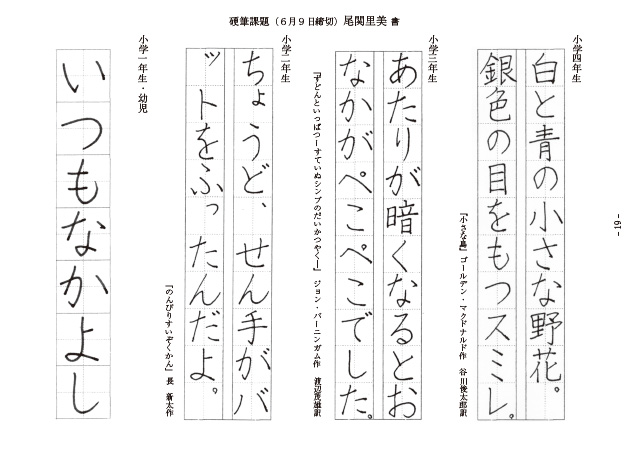 硬筆課題（６月９日締切）尾関里美 書
小学四年生
白と青の小さな野花。
銀色の目をもつスミレ。
『小さな島』ゴールデン・マクドナルド作　谷川俊太郎訳
小学三年生
あたりが暗くなるとお
なかがぺこぺこでした。
『ずどんといっぱつ―すていぬシンプのだいかつやく―』ジョン・バーニンガム作　渡辺茂雄訳
小学二年生
ちょうど、せん手がバ
ットをふったんだよ。
『のんびりすいぞくかん』長　新太作
小学一年生・幼児
いつもなかよし
- 19 -